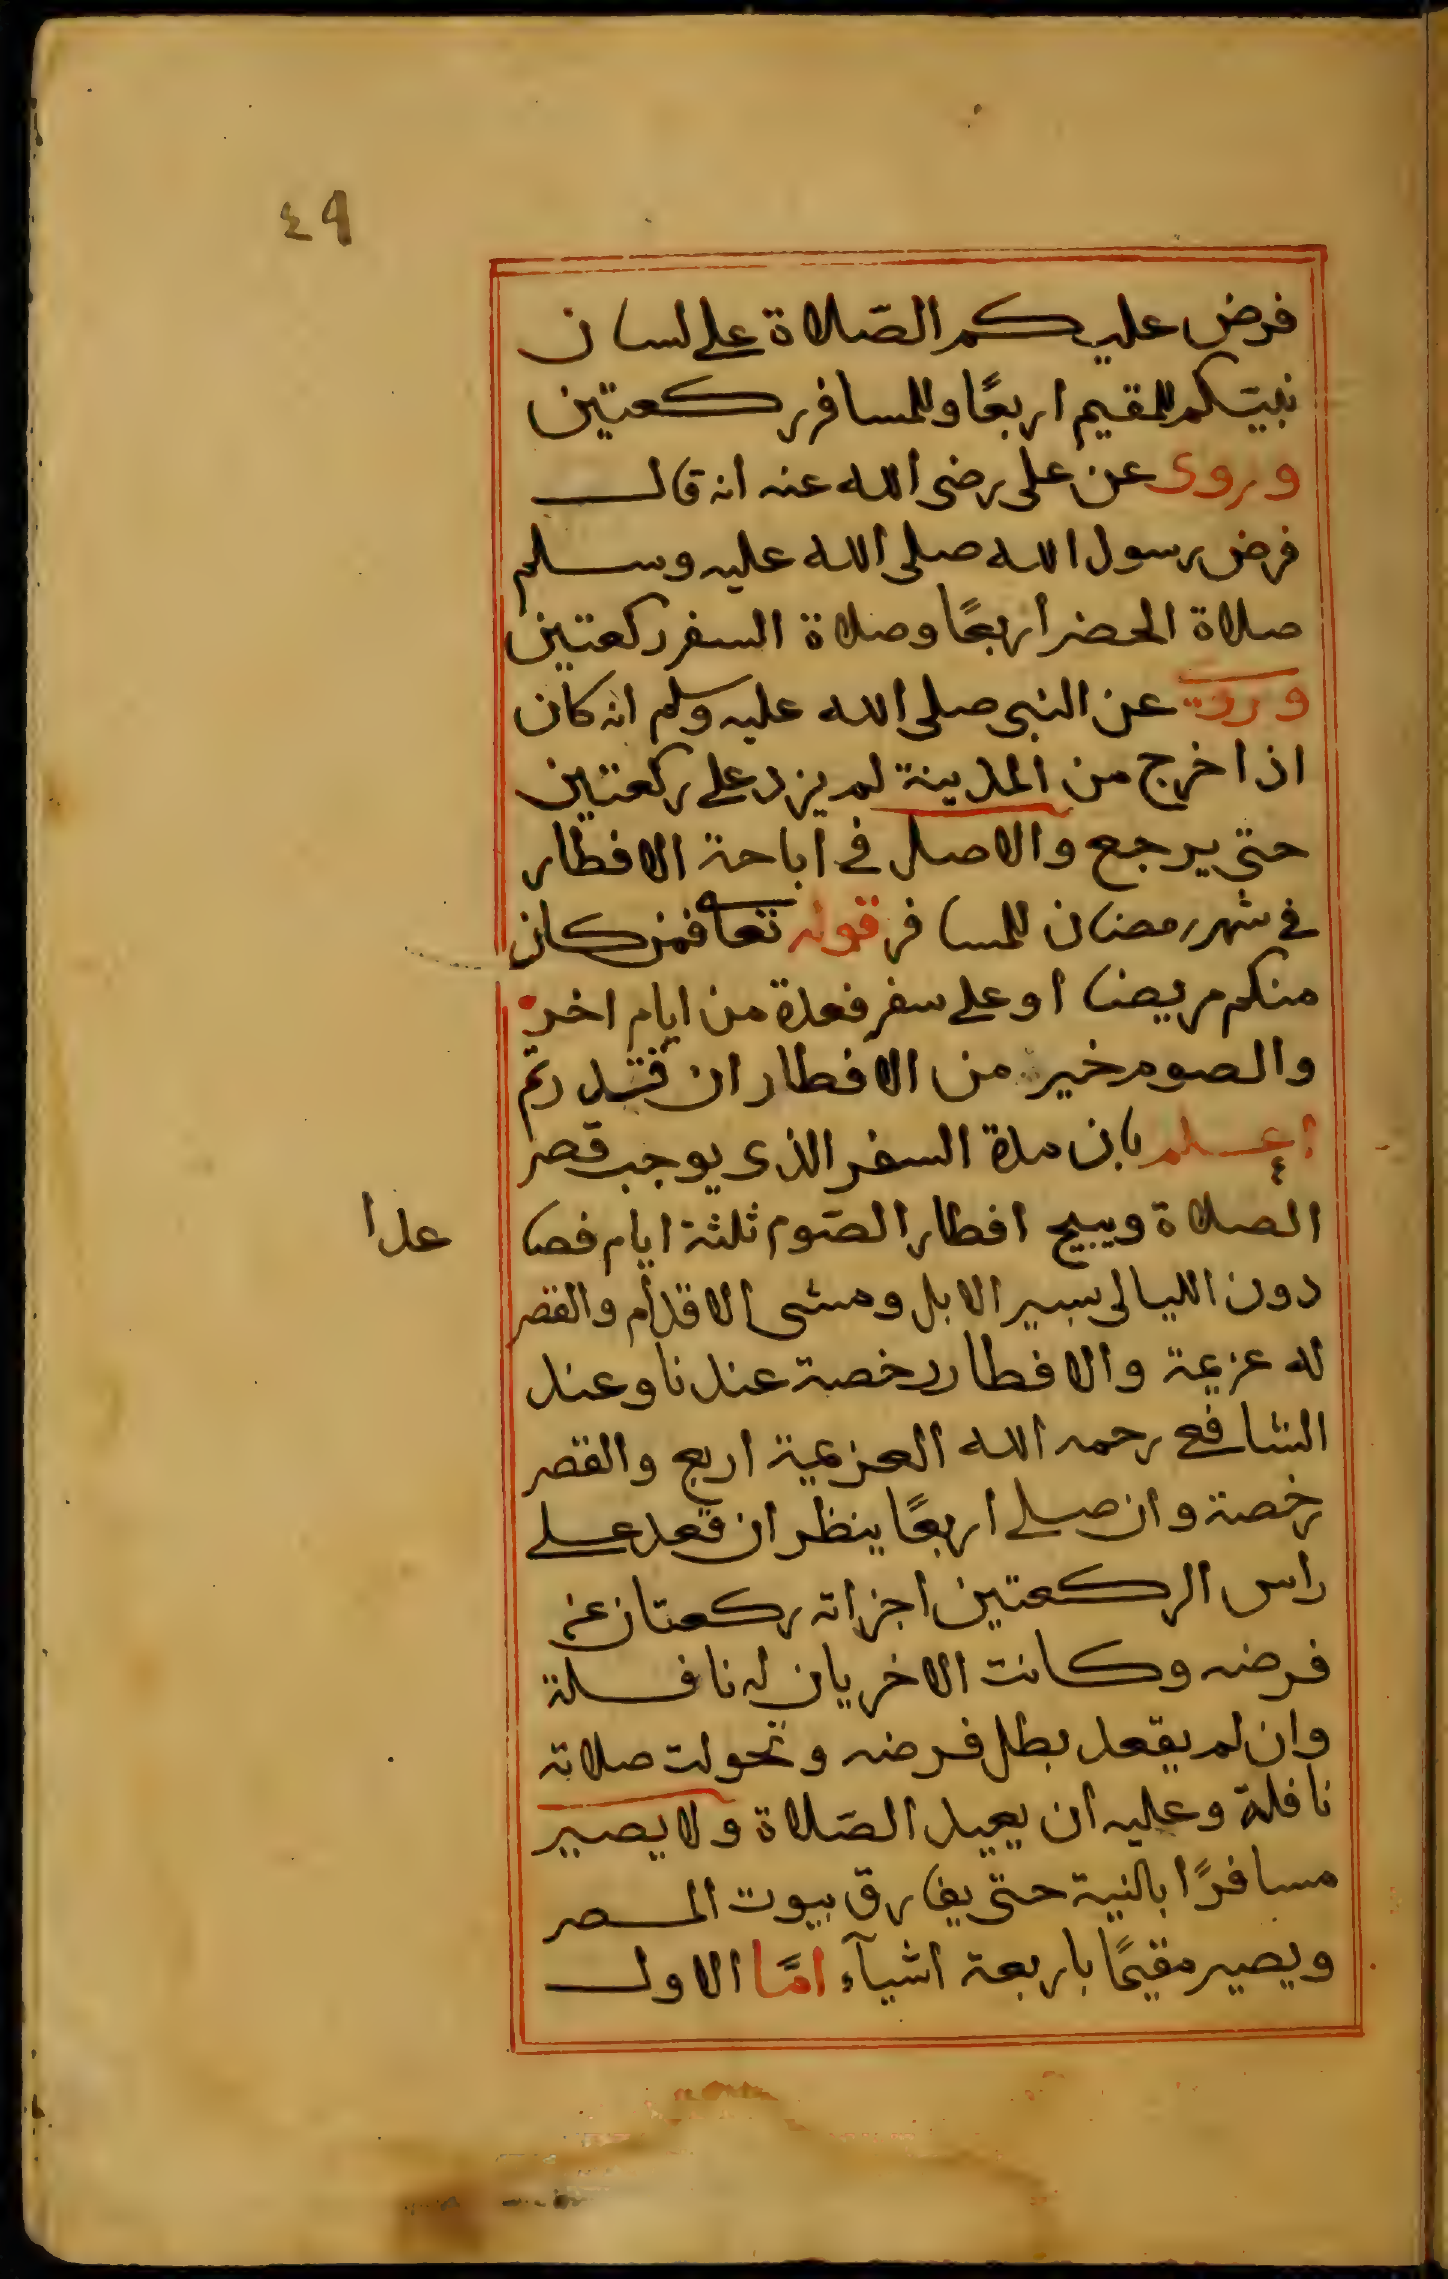 ٤٩
فرض عليكم الصّلاة على لسان
نبيّكم للمقيم اربعًا وللمسافر ركعتين
وروى عن على رضى الله عنه انه قال
فرض رسول الله صلى الله عليه وسلم
صلاة الحضر اربعًا وصلاة السفر ركعتين
وروى عن النبى صلى الله عليه وسلم انه كان
اذا خرج من المدينة لم يزد على ركعتين
حتى يرجع والاصل فى اباحة الافطار
فى شهر رمضان للمسافر قوله تعا فمن كان
منكم مريضا او على سفر فعدة من ايام اخر
والصوم خير من الافطار ان قدرتم
اعلم بان مدة السفر الذى يوجب قصر
الصلاة ويبيح افطار الصّوم ثلثة ايام فصا
عدا
دون الليالى بسير الابل ومشى الاقدام والقصر
له عزيمة والافطار رخصة عندنا وعند
الشافعى رحمه الله العزيمة اربع والقصر
رخصة وان صلى اربعًا ينظر ان قعد على
راس الركعتين اجزاته ركعتان عن
فرضه وكانت الاخريان له نافلة
وان لم يقعد بطل فرضه وتحولت صلاته
نافلة وعليه ان يعيد الصّلاة ولا يصير
مسافرًا بالنية حتى يفارق بيوت المصر
ويصير مقيمًا باربعة اشيآء امّا الاول